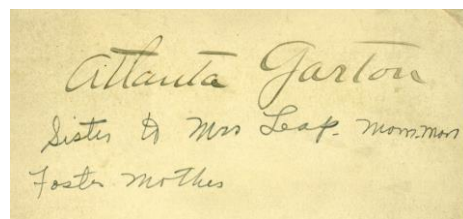 Atlanta Garton
Sister to Mrs Leap. Mom. Mors
Foster Mother